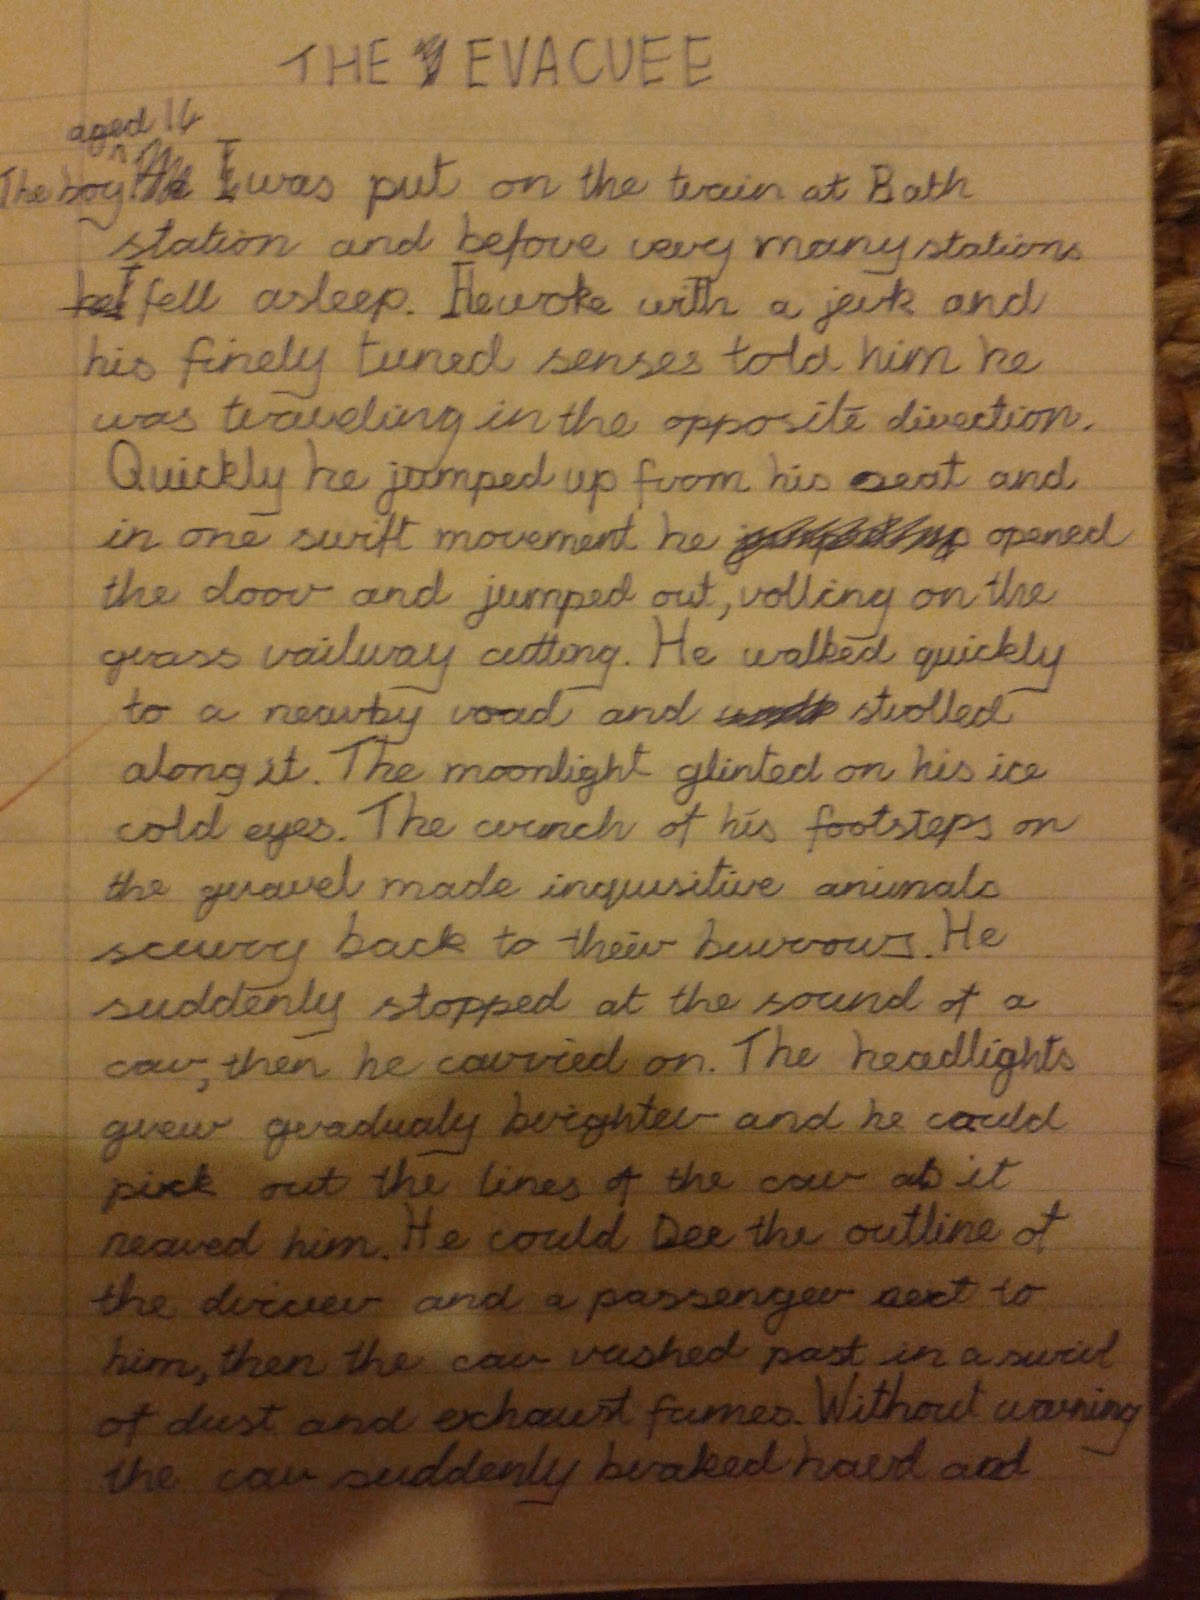 THE EVACUEE
aged 14
The boy ^ I was put on the train at Bath
station and before very many stations
he I fell asleep. He woke with a jerk and
his finely tuned senses told him he
was traveling in the opposite direction.
Quickly he jumped up from his seat and
in one swift movement he jumped up opened
the door and jumped out, rolling on the
grass railway cutting. He walked quickly
to a nearby road and walk strolled
along it. The moonlight glinted on his ice
cold eyes. The crunch of his footsteps on
the gravel made inquisitive animals
scurry back to their burrows. He
suddenly stopped at the sound of a
car, then he carried on. The headlights
grew gradualy brighter and he could
pick out the lines of the car as it
neared him. He could see the outline of
the driver and a passenger next to
him, then the car rushed past in a swirl
of dust and exhaust fumes. Without warning
the car suddenly braked hard and